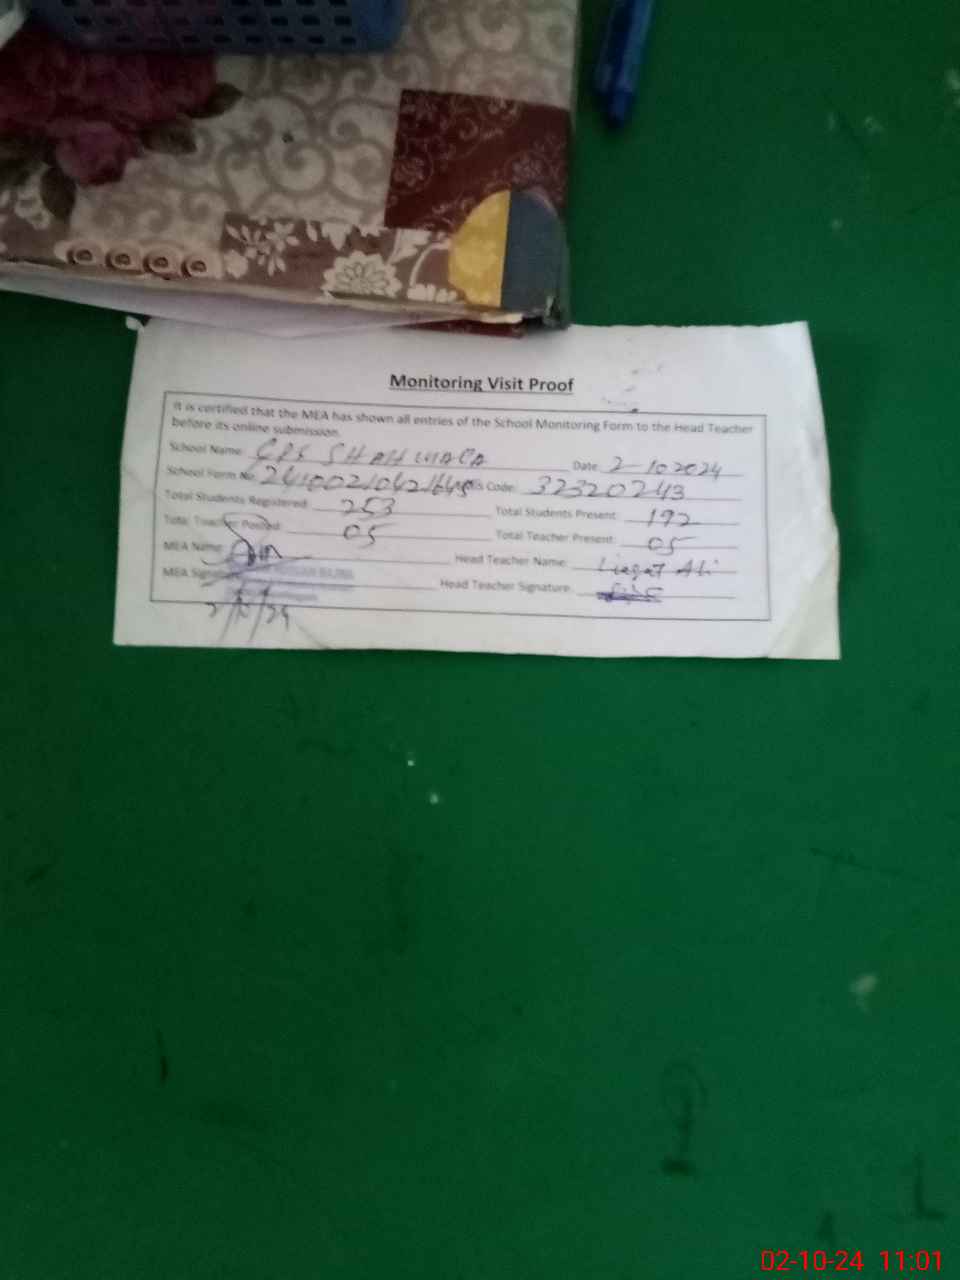 Monitoring Visit Proof
It is certified that the MEA has shown all entries of the School Monitoring Form to the Head Teacher
before its online submission.
School Name: GPS SHAH WALA Date: 2-10 2024
School Form No: Code: 32320243
Total Students Registered: 253 Total Students Present: 192
Total Teacher Posted: 05 Total Teacher Present: 05
MEA Name: Head Teacher Name: Liaqat Ali
MEA Head Teacher Signature:
02-10-24 11:01